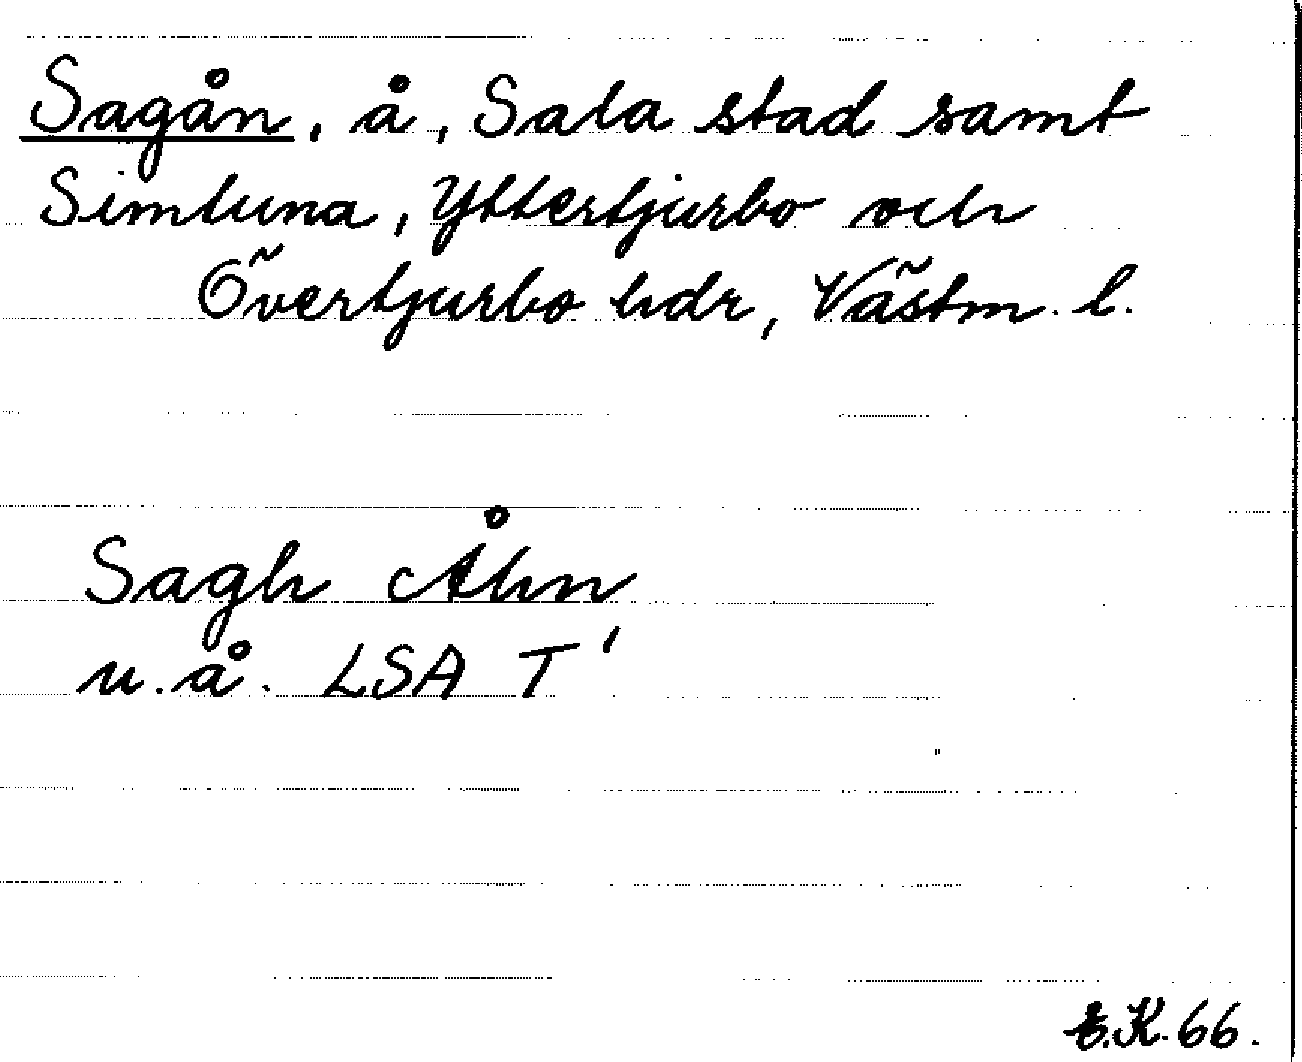 Sagån, å, Sala stad samt
Simtuna, Yttertjurbo och
Övertjurbo hdr, Västm. l.
Sagh Åhn
u.å. LSA T'
K. 66.